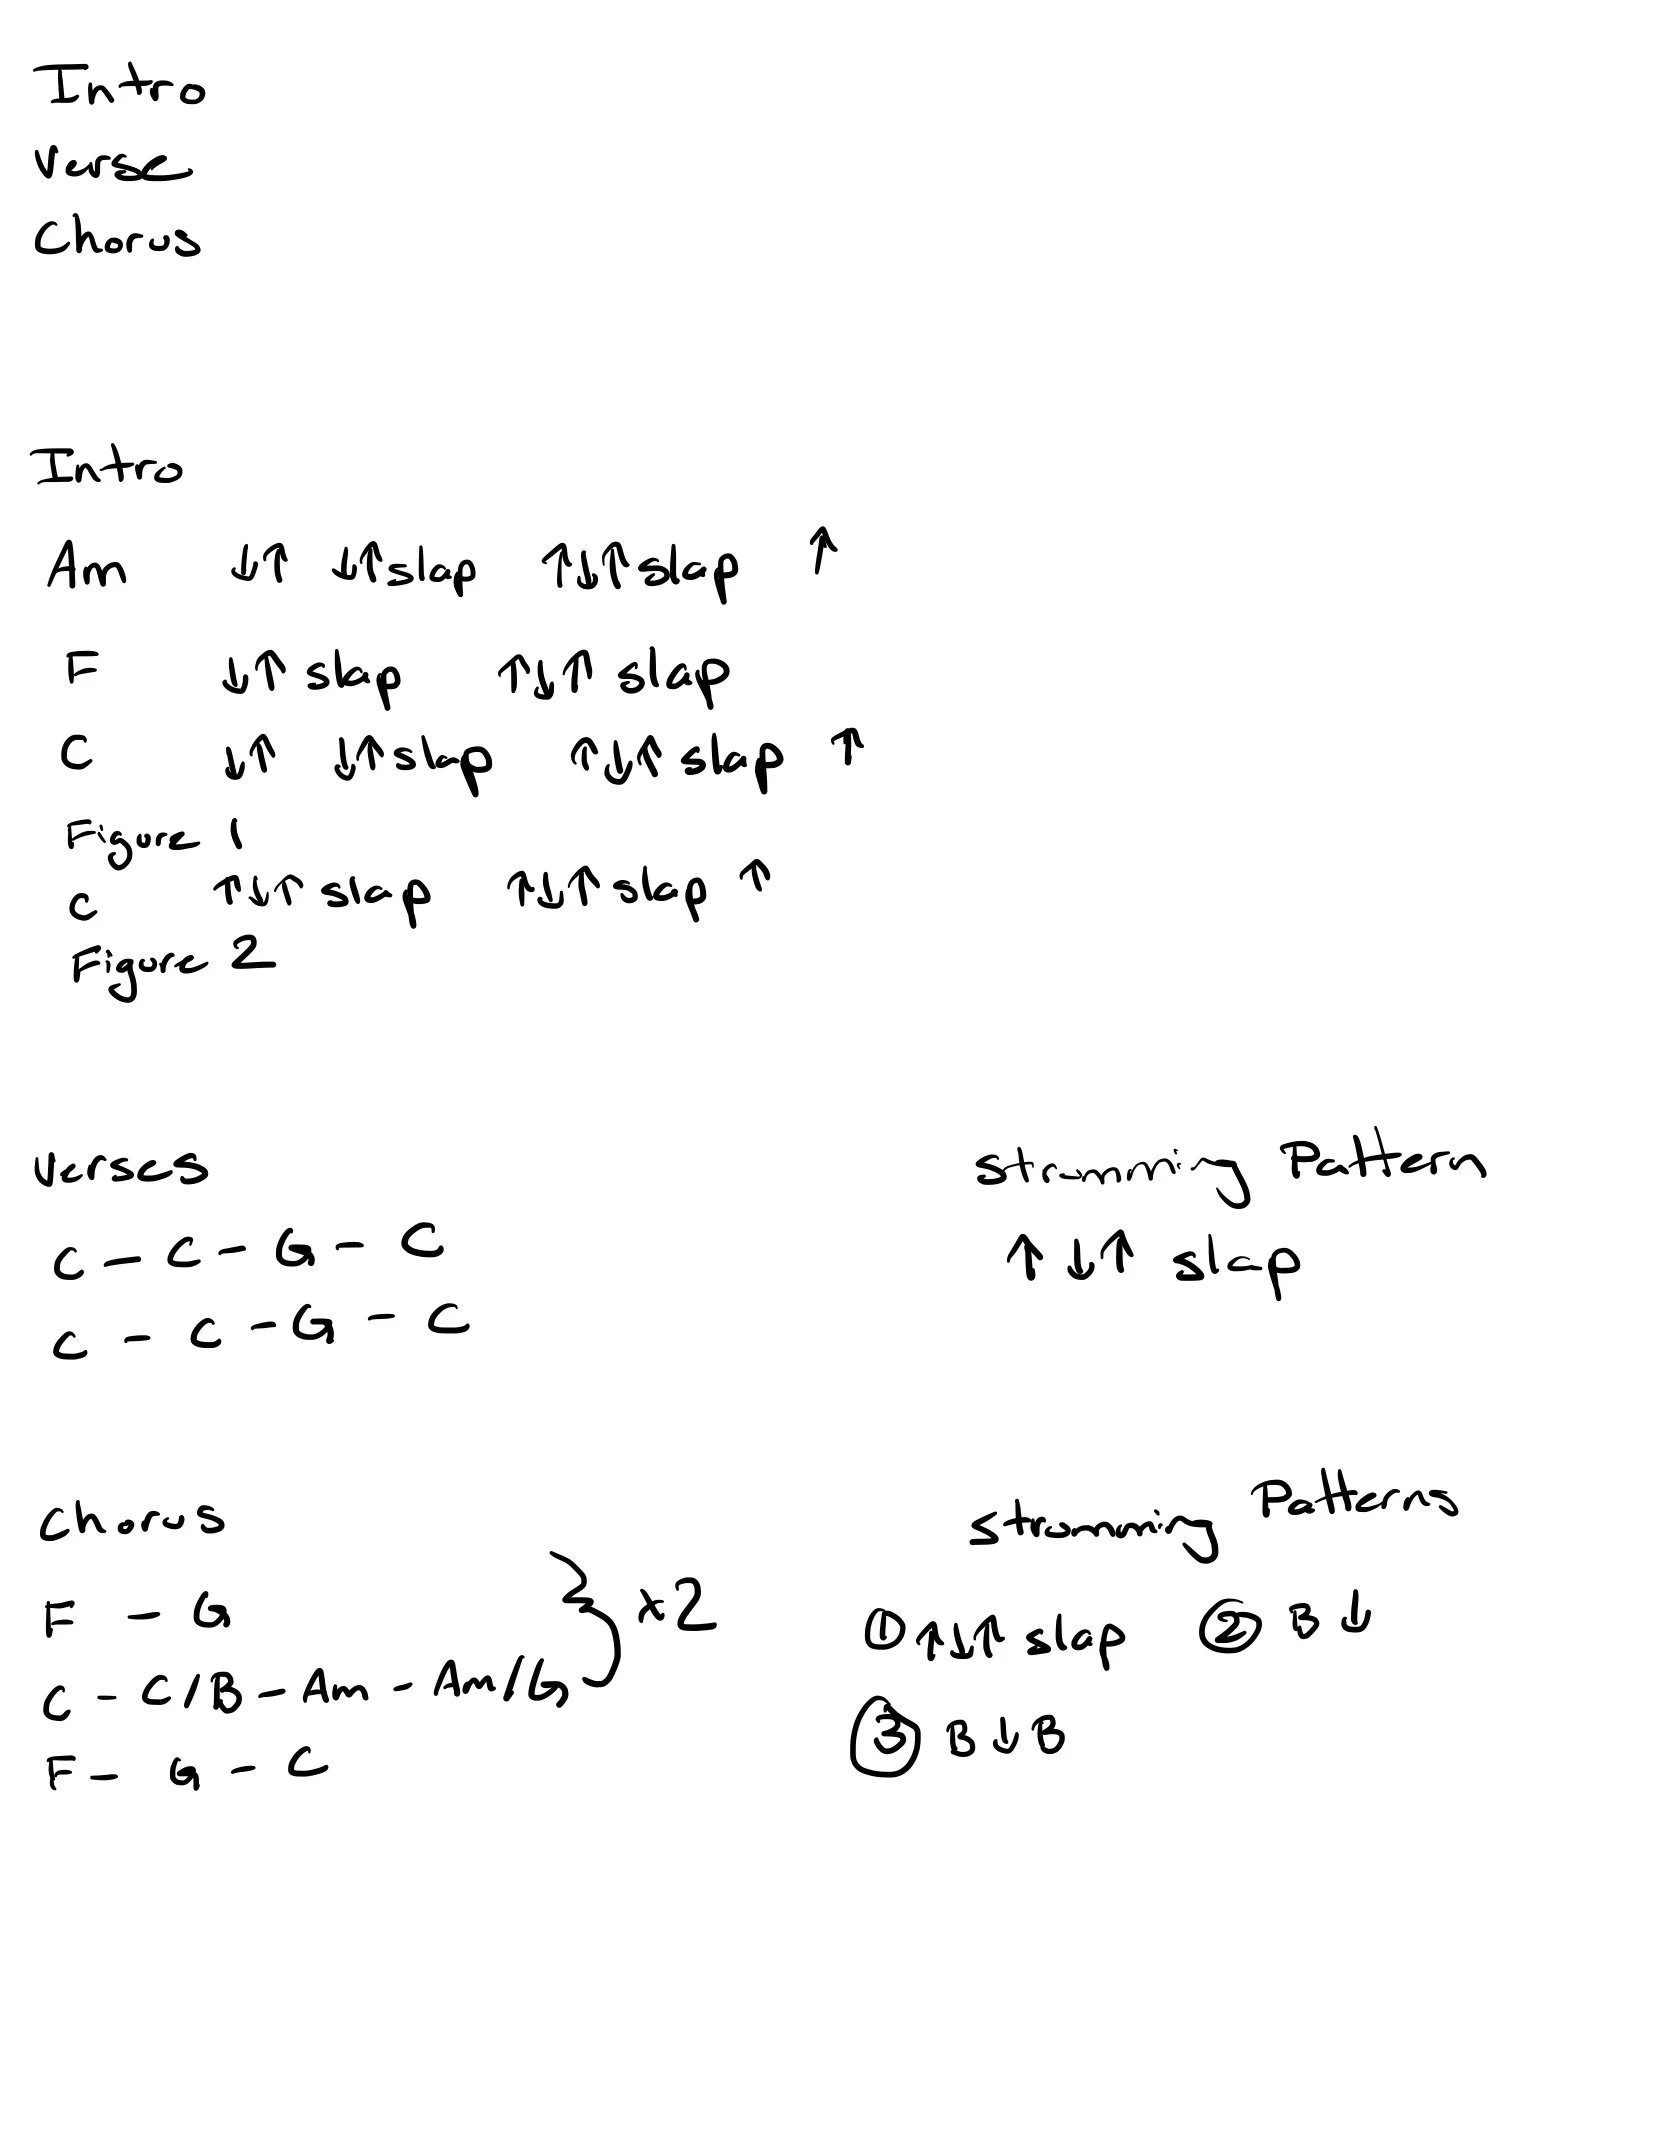 Intro
Verse
Chorus
Intro
Am ↓↑ ↓↑ slap ↑↓↑ slap ↑
F ↓↑ slap ↑↓↑ slap
C ↓↑ ↓↑ slap ↑↓↑ slap ↑
Figure 1
C ↑↓↑ slap ↑↓↑ slap ↑
Figure 2
Verses
C - C - G - C
C - C - G - C
Strumming Pattern
↑↓↑ slap
Chorus
F - G
C - C/B - Am - Am/G } x2
F - G - C
Strumming Patterns
① ↑↓↑ slap ② B ↓
③ B ↓ B